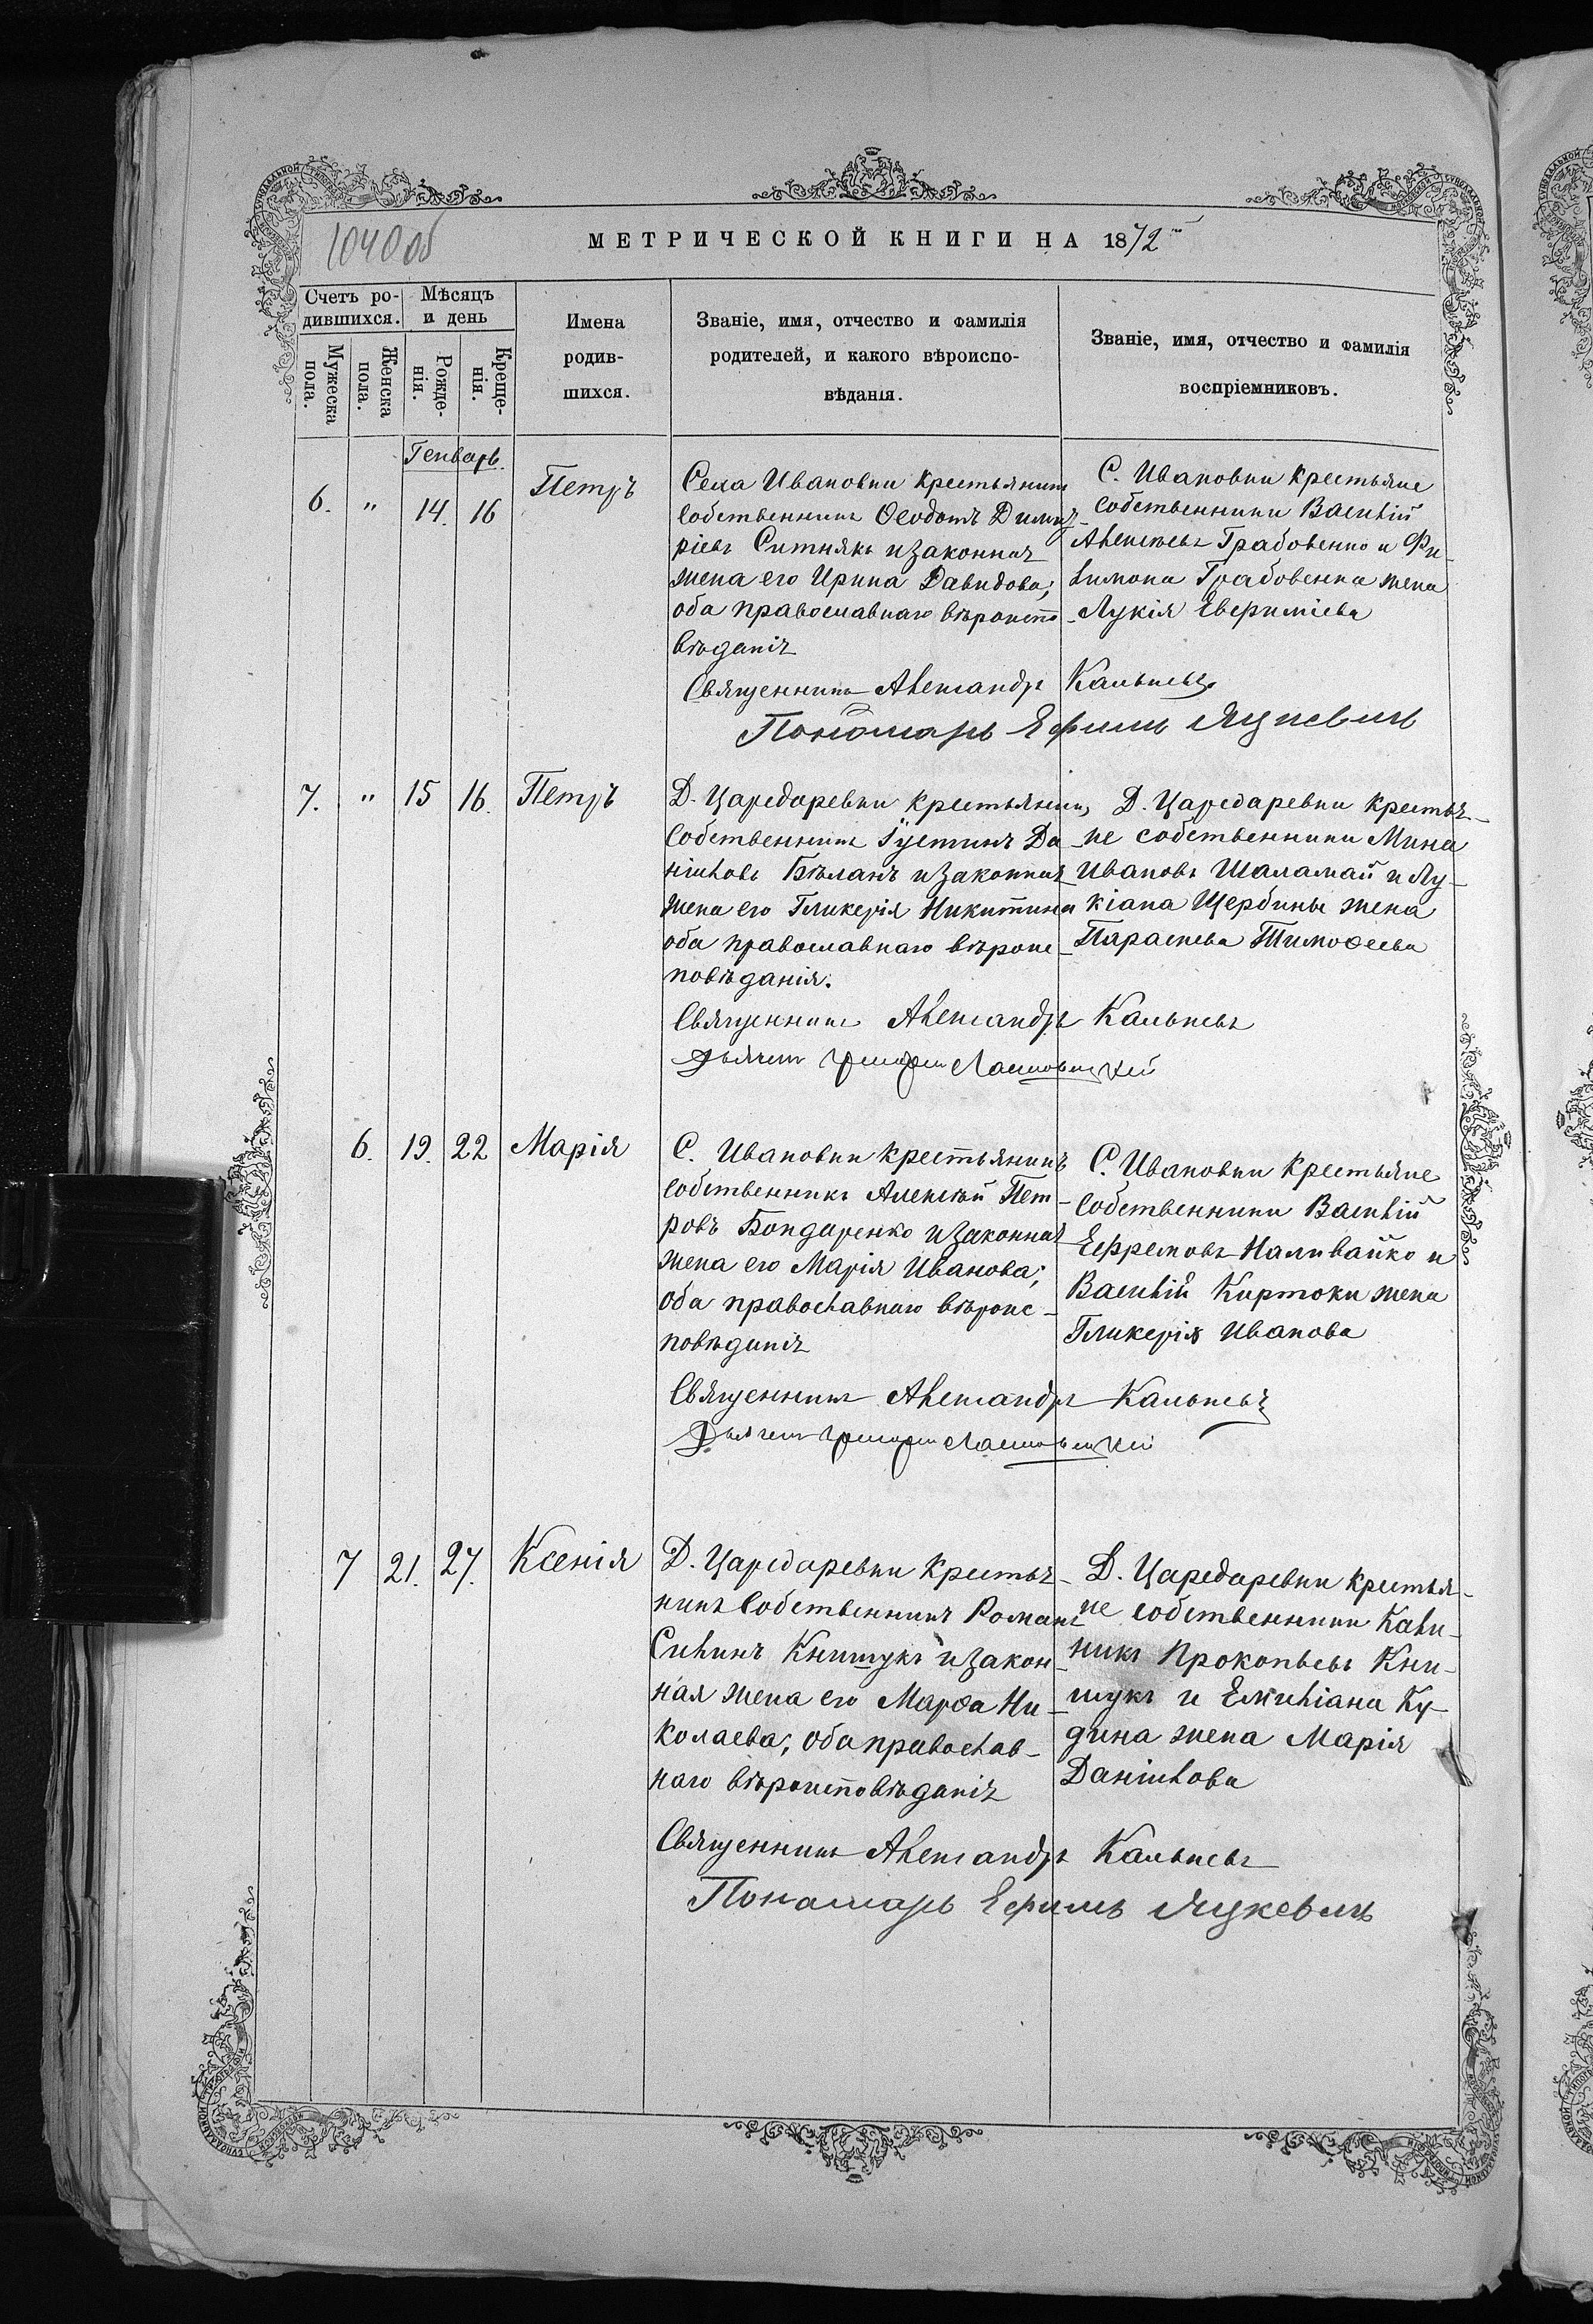 1040 об
МЕТРИЧЕСКОЙ КНИГИ НА 1872
Счетъ ро-
дившихся.
Мѣсяцъ
и день
Мужеска
пола.
Женска
пола.
Рожде-
нія.
Креще-
нія.
Имена
родив-
шихся.
Званіе, имя, отчество и фамилія
родителей, и какого вѣроиспо-
вѣданія.
Званіе, имя, отчество и фамилія
воспріемниковъ.
Генварь.
6. " 14. 16 Петръ
Села Ивановки крестьянинъ
собственникъ Ѳеодотъ Димит-
ріевъ Ситнякъ и законная
жена его Ирина Давидова;
оба православнаго вѣроиспо
вѣданія
С. Ивановки крестьяне
собственники Василій
Алексѣевъ Грабовенко и Фи-
лимона Грабовенка жена
Лукія Евфиміева
Священникъ Александръ Кальневъ
Пономарь Ефимъ Яцкевичъ
7. " 15 16. Петръ
Д. Царедаревки крестьянинъ
собственникъ Іустинъ Да
ніиловъ Бѣланъ и законная
жена его Гликерія Никитина
оба православнаго вѣроис-
повѣданія.
Д. Царедаревки крестья-
не собственники Мина
Ивановъ Шаламай и Лу-
кіана Щербины жена
Параскева Тимоѳеева
Священникъ Александръ Кальневъ
Дьячекъ Григорій
6. 19. 22 Марія
С. Ивановки крестьянинъ
собственникъ Алексѣй Пет-
ровъ Бондаренко и законная
жена его Марія Иванова;
оба православнаго вѣроис-
повѣданія
С. Ивановки крестьяне
собственники Василій
Ефремовъ Наливайко и
Василій Киртоки жена
Гликерія Иванова
Священникъ Александръ Кальневъ
Дьячекъ Григорій
7 21. 27. Ксенія
Д. Царедаревки крестья-
нинъ собственникъ Романъ
Силинъ Книшукъ и закон-
ная жена его Марѳа Ни-
колаева; оба православ-
наго вѣроисповѣданія
Д. Царедаревки крестья-
не собственники Кали-
никъ Прокопьевъ Кни-
шукъ и Емиліана Ку-
дина жена Марія
Даніилова
Священникъ Александръ Кальневъ
Понамарь Ефимъ Яцкевичъ